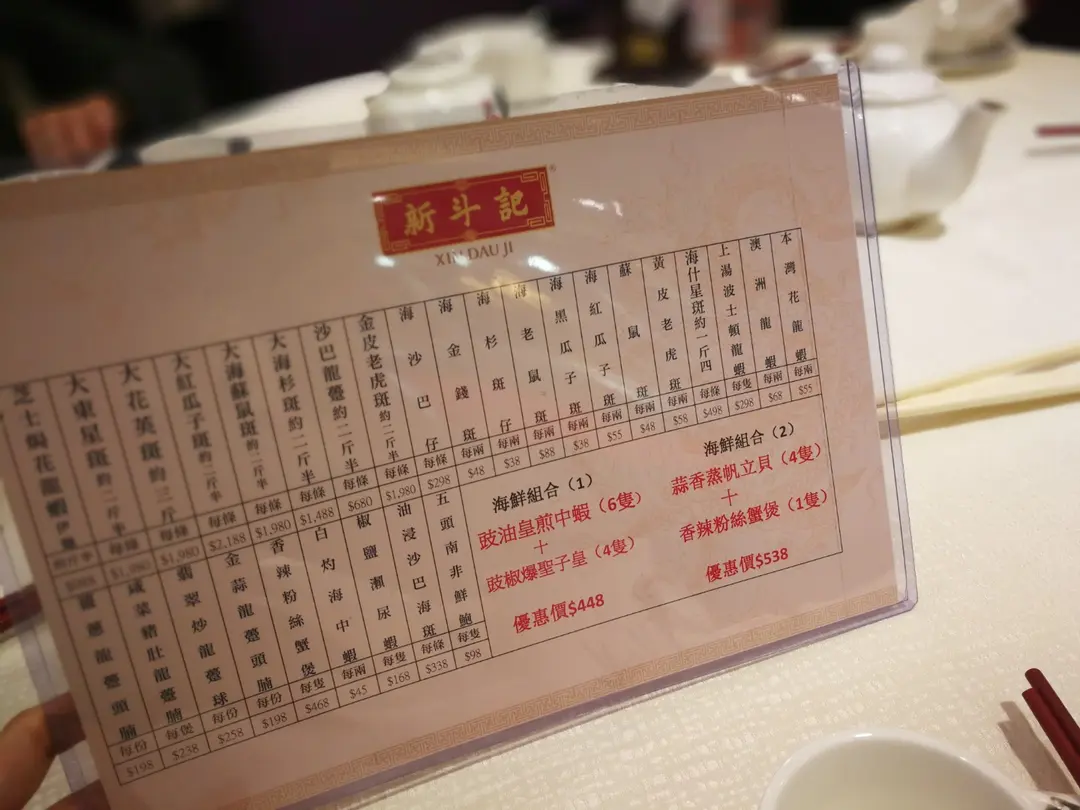 新斗記
XIN DAU JI
本灣花龍蝦 每兩 $55
澳洲龍蝦 每兩 $68
上湯波士頓龍蝦 每隻 $298
海什星斑約一斤四 每條 $498
黃皮老虎斑 每兩 $58
蘇鼠斑 每兩 $48
海紅瓜子斑 每兩 $55
海黑瓜子斑 每兩 $38
海老鼠斑 每兩 $88
海杉斑仔 每兩 $38
海金錢斑 每兩 $48
海沙巴仔 每條 $298
金皮老虎斑約二斤半 每條 $1,980
沙巴龍躉約二斤半 每條 $680
大海杉斑約二斤半 每條 $1,488
大海蘇鼠斑約二斤半 每條 $1,980
大紅瓜子斑約二斤半 每條 $2,188
大花英斑約三斤 每條 $1,980
大東星斑約二斤半 每條
芝士焗花龍蝦
五頭南非鮮鮑 每隻 $98
油浸沙巴海斑 每條 $338
椒鹽瀨尿蝦 每隻 $168
白灼海中蝦 每兩 $45
香辣粉絲蟹煲 每隻 $468
金蒜龍躉頭腩 每份 $198
翡翠炒龍躉球 每份 $258
咸菜豬肚龍躉腩 每煲 $238
龍躉頭腩 每份 $198
海鮮組合（1）
豉油皇煎中蝦（6隻）
+
豉椒爆聖子皇（4隻）
優惠價$448
海鮮組合（2）
蒜香蒸帆立貝（4隻）
+
香辣粉絲蟹煲（1隻）
優惠價$538